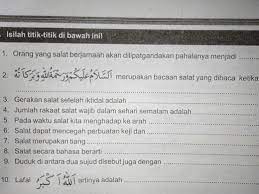 Isilah titik-titik di bawah ini!
1. Orang yang salat berjamaah akan dilipatgandakan pahalanya menjadi ........
2. اَلسَّلاَمُ عَلَيْكُمْ وَرَحْمَةُ اللهِ وَبَرَكَاتُهُ merupakan bacaan salat yang dibaca ketika
........
3. Gerakan salat setelah iktidal adalah ........
4. Jumlah rakaat salat wajib dalam sehari semalam adalah ........
5. Pada waktu salat kita menghadap ke arah ........
6. Salat dapat mencegah perbuatan keji dan ........
7. Salat merupakan tiang ........
8. Salat secara bahasa berarti ........
9. Duduk di antara dua sujud disebut juga dengan ........
10. Lafal اَللهُ اَكْبَرُ artinya adalah ........